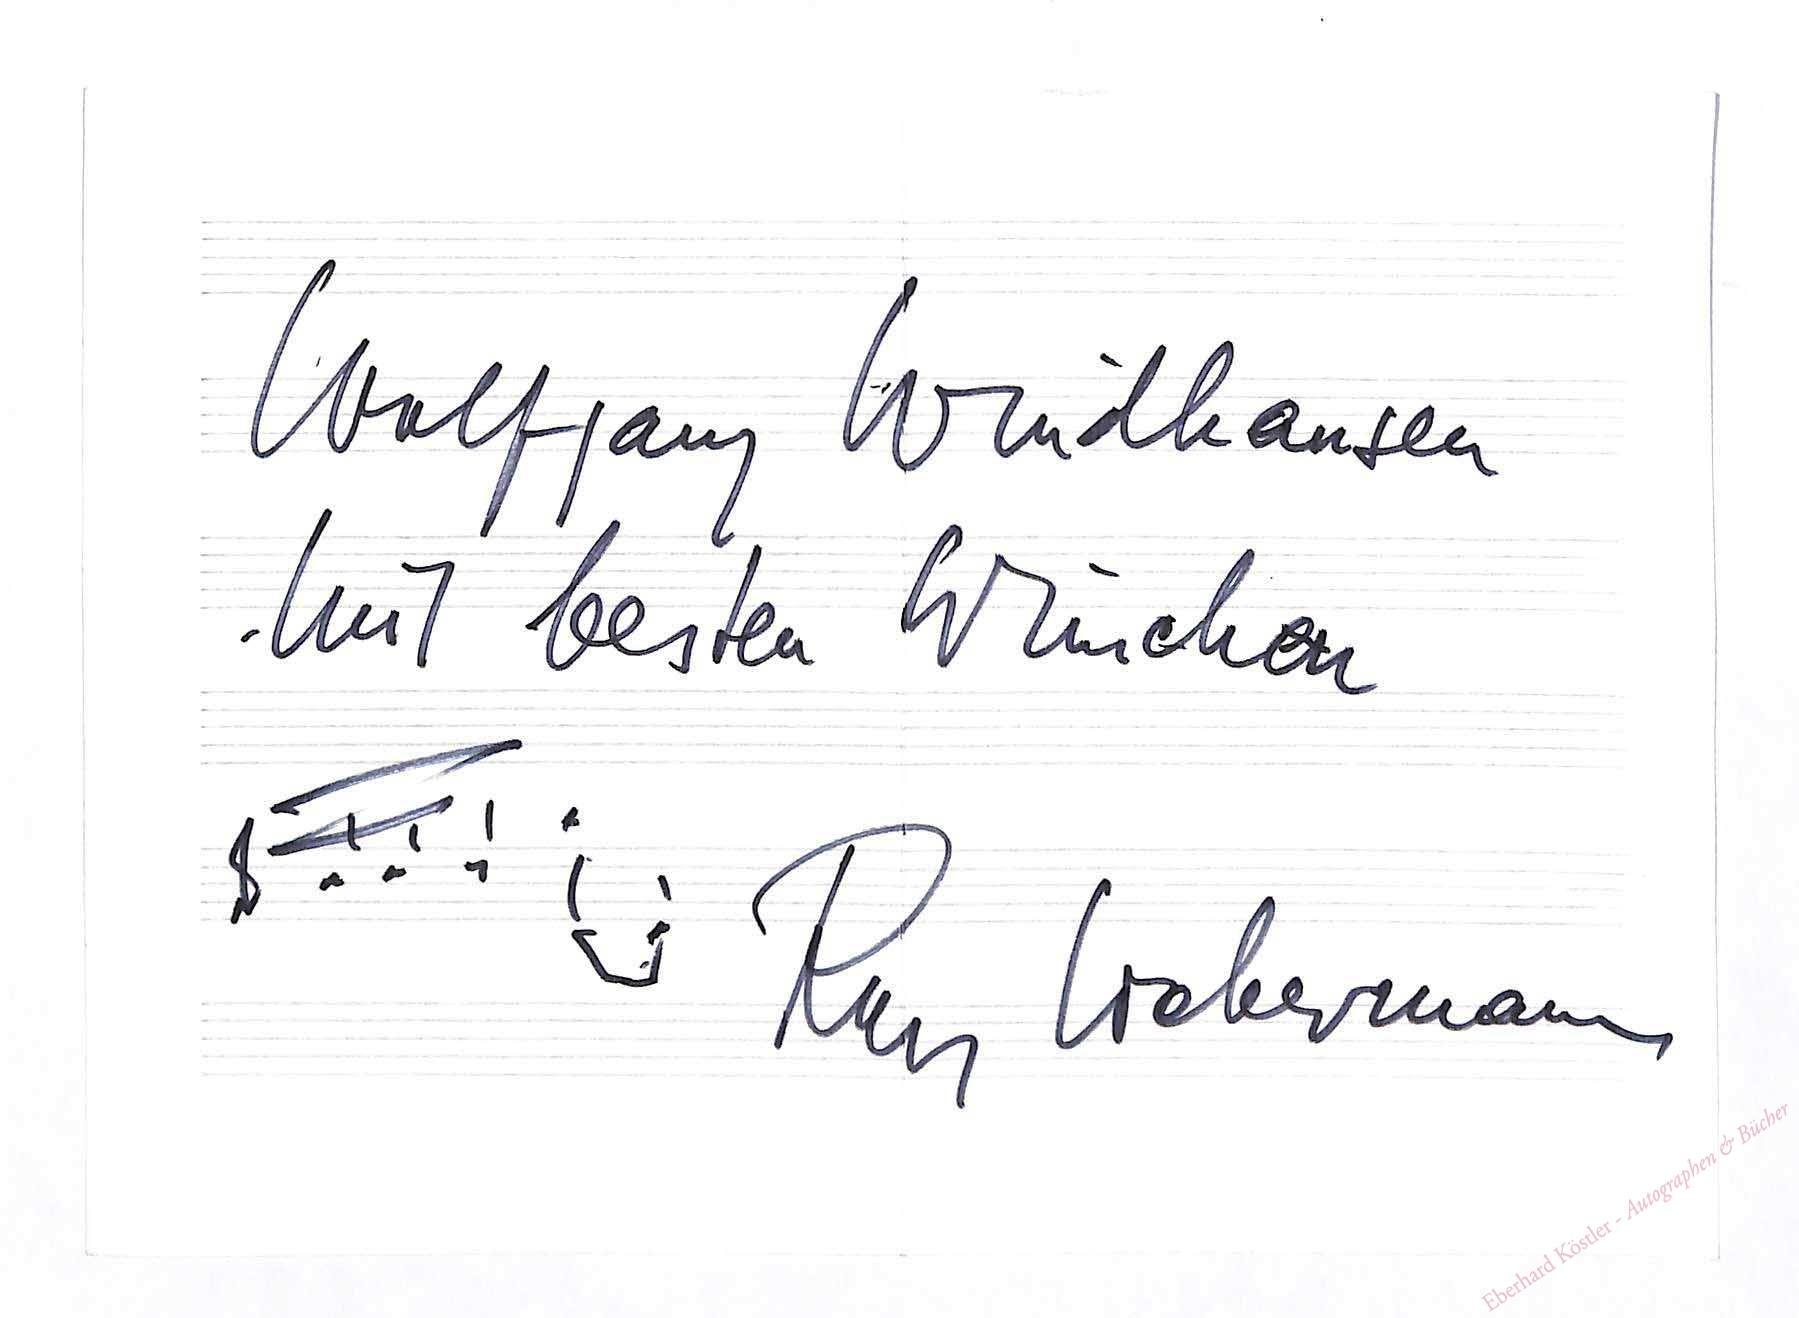 Wolfgang Windhausen
mit besten Wünschen
Rolf Liebermann
Eberhard Köstler - Autographen & Bücher